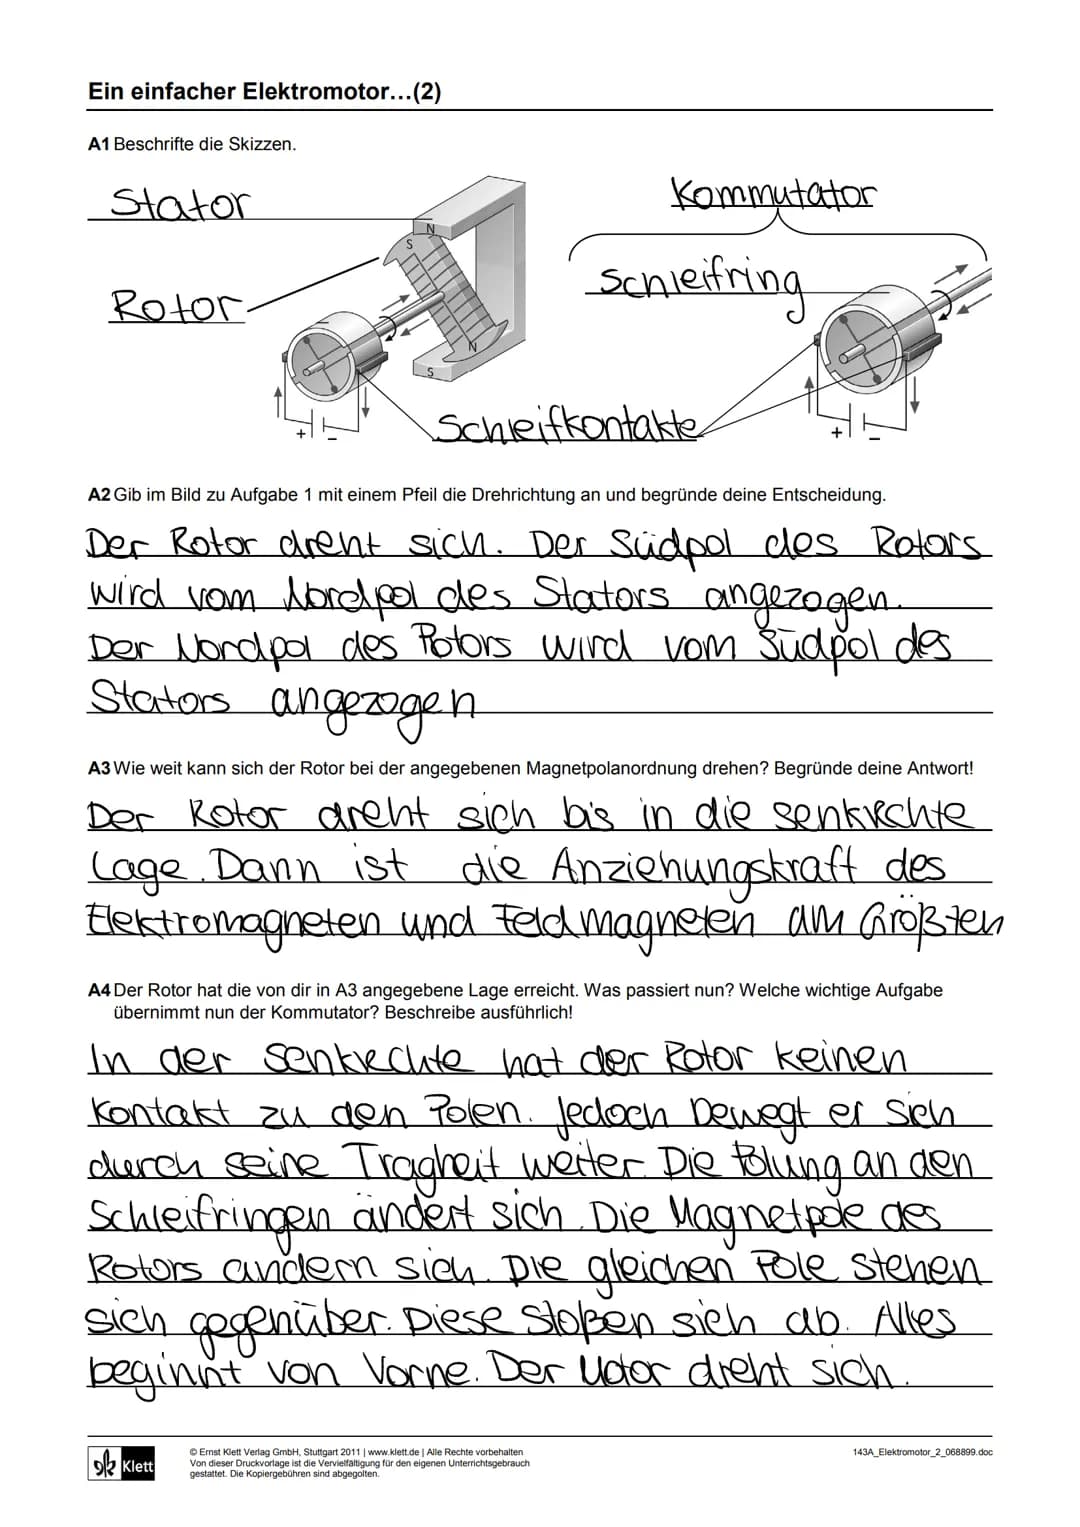 Ein einfacher Elektromotor…(2)
A1 Beschrifte die Skizzen.
Stator
Kommutator
N
S
Schleifring
Rotor
N
S
Schleifkontakte
+ −
+ −
A2 Gib im Bild zu Aufgabe 1 mit einem Pfeil die Drehrichtung an und begründe deine Entscheidung.
Der Rotor dreht sich. Der Südpol des Rotors
wird vom Nordpol des Stators angezogen.
Der Nordpol des Rotors wird vom Südpol des
Stators angezogen
A3 Wie weit kann sich der Rotor bei der angegebenen Magnetpolanordnung drehen? Begründe deine Antwort!
Der Rotor dreht sich bis in die senkrechte
Lage. Dann ist die Anziehungskraft des
Elektromagneten und Feldmagneten am Größten
A4 Der Rotor hat die von dir in A3 angegebene Lage erreicht. Was passiert nun? Welche wichtige Aufgabe
übernimmt nun der Kommutator? Beschreibe ausführlich!
In der Senkrechte hat der Rotor keinen
Kontakt zu den Polen. Jedoch bewegt er sich
durch seine Tragheit weiter. Die Polung an den
Schleifringen ändert sich. Die Magnetpole des
Rotors ändern sich. Die gleichen Pole stehen
sich gegenüber. Diese stoßen sich ab. Alles
beginnt von Vorne. Der dreht sich.
Klett
© Ernst Klett Verlag GmbH, Stuttgart 2011 | www.klett.de | Alle Rechte vorbehalten
Von dieser Druckvorlage ist die Vervielfältigung für den eigenen Unterrichtsgebrauch
gestattet. Die Kopiergebühren sind abgegolten.
143A_Elektromotor_2_068899.doc